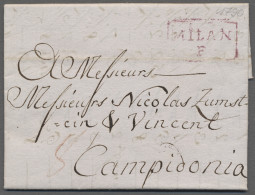 MILAN
F
A Messieurs
Messieurs Nicolas Zumst
=ein & Vincent
Campidonia